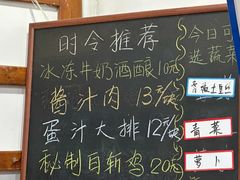 时令推荐
冰冻牛奶酒酿10元
酱汁肉 13元/块
蛋汁大排 12元/块
秘制自斩鸡 20元
今日可
选蔬菜
青椒土豆丝
青菜
萝卜